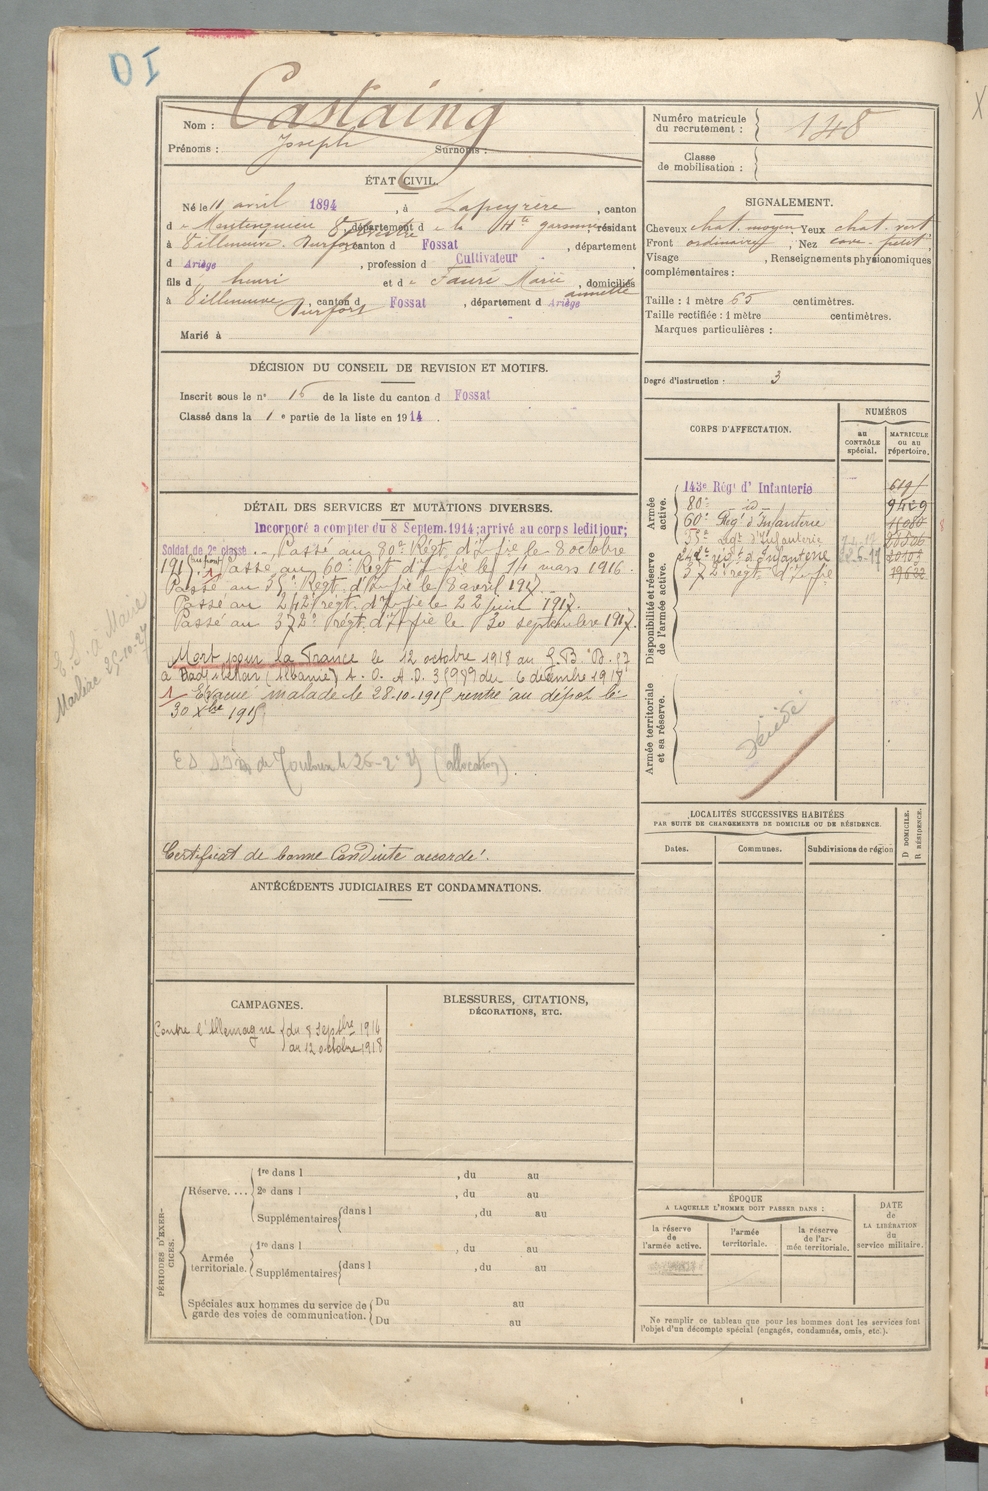 DI
Nom : Castaing
Prénoms : Joseph Surnoms :
ÉTAT CIVIL.
Né le 11 avril 1894, à Lapeyrère, canton
de Montesquieu Volvestre département de la Hte garonne résidant
à Villeneuve-Durfort canton d Fossat, département
d Ariège, profession d Cultivateur
fils d henri et de Fauré Marie annette, domiciliés
à Villeneuve Durfort, canton d Fossat, département d Ariège
Marié à
DÉCISION DU CONSEIL DE REVISION ET MOTIFS.
Inscrit sous le n° 15 de la liste du canton d Fossat
Classé dans la 1e partie de la liste en 1914.
DÉTAIL DES SERVICES ET MUTATIONS DIVERSES.
Incorporé a compter du 8 Septem. 1914; arrivé au corps ledit jour;
Soldat de 2e classe. Passé au 80e Régt. d'Infie le 8 octobre
191 (au front) 1 Passé au 60e Régt d'Infie le 11 mars 1916.
Passé au 35e Régt. d'Infie le 8 avril 1917.
Passé au 242e régt. d'Infie le 22 juin 1917.
Passé au 372e Régt. d'Infie le 30 septembre 1917.
Mort pour la France le 12 octobre 1918 au
à (Albanie) 6 décembre 1918
1 Evacué malade le 28.10.1915 rentré au dépôt le
30 Xbre 1915
de Toulouse le 26-2- (allocation).
Certificat de bonne Conduite accordé.
ANTÉCÉDENTS JUDICIAIRES ET CONDAMNATIONS.
CAMPAGNES.
Contre l'Allemagne { du 8 Septbre 1914
au 12 octobre 1918
BLESSURES, CITATIONS,
DÉCORATIONS, ETC.
PÉRIODES D'EXERCICES.
Réserve....
1re dans l , du au
2e dans l , du au
Supplémentaires { dans l , du au
Armée territoriale.
1re dans l , du au
Supplémentaires { dans l , du au
Spéciales aux hommes du service de
garde des voies de communication.
Du au
Du au
a Marie
25-10-27
Numéro matricule
du recrutement : 148
Classe
de mobilisation :
SIGNALEMENT.
Cheveux chat. moyen Yeux chat. vert
Front ordinaire, Nez cave petit;
Visage , Renseignements physionomiques
complémentaires :
Taille : 1 mètre 65 centimètres.
Taille rectifiée : 1 mètre centimètres.
Marques particulières :
Degré d'instruction : 3
CORPS D'AFFECTATION.
NUMÉROS
au
CONTRÔLE
spécial.
MATRICULE
ou au
répertoire.
Armée
active.
143e Régt d'Infanterie
80e id
60e Régt d'Infanterie
Régt d'Infanterie
242e régt d'Infanterie
372e régt d'Infie
Disponibilité et réserve
de l'armée active.
Armée territoriale
et sa réserve.
Décédé
LOCALITÉS SUCCESSIVES HABITÉES
PAR SUITE DE CHANGEMENTS DE DOMICILE OU DE RÉSIDENCE.
D DOMICILE.
R RÉSIDENCE.
Dates.
Communes.
Subdivisions de région
ÉPOQUE
A LAQUELLE L'HOMME DOIT PASSER DANS :
la réserve
de
l'armée active.
l'armée
territoriale.
la réserve
de l'ar-
mée territoriale.
DATE
de
LA LIBÉRATION
du
service militaire.
Ne remplir ce tableau que pour les hommes dont les services font
l'objet d'un décompte spécial (engagés, condamnés, omis, etc.).